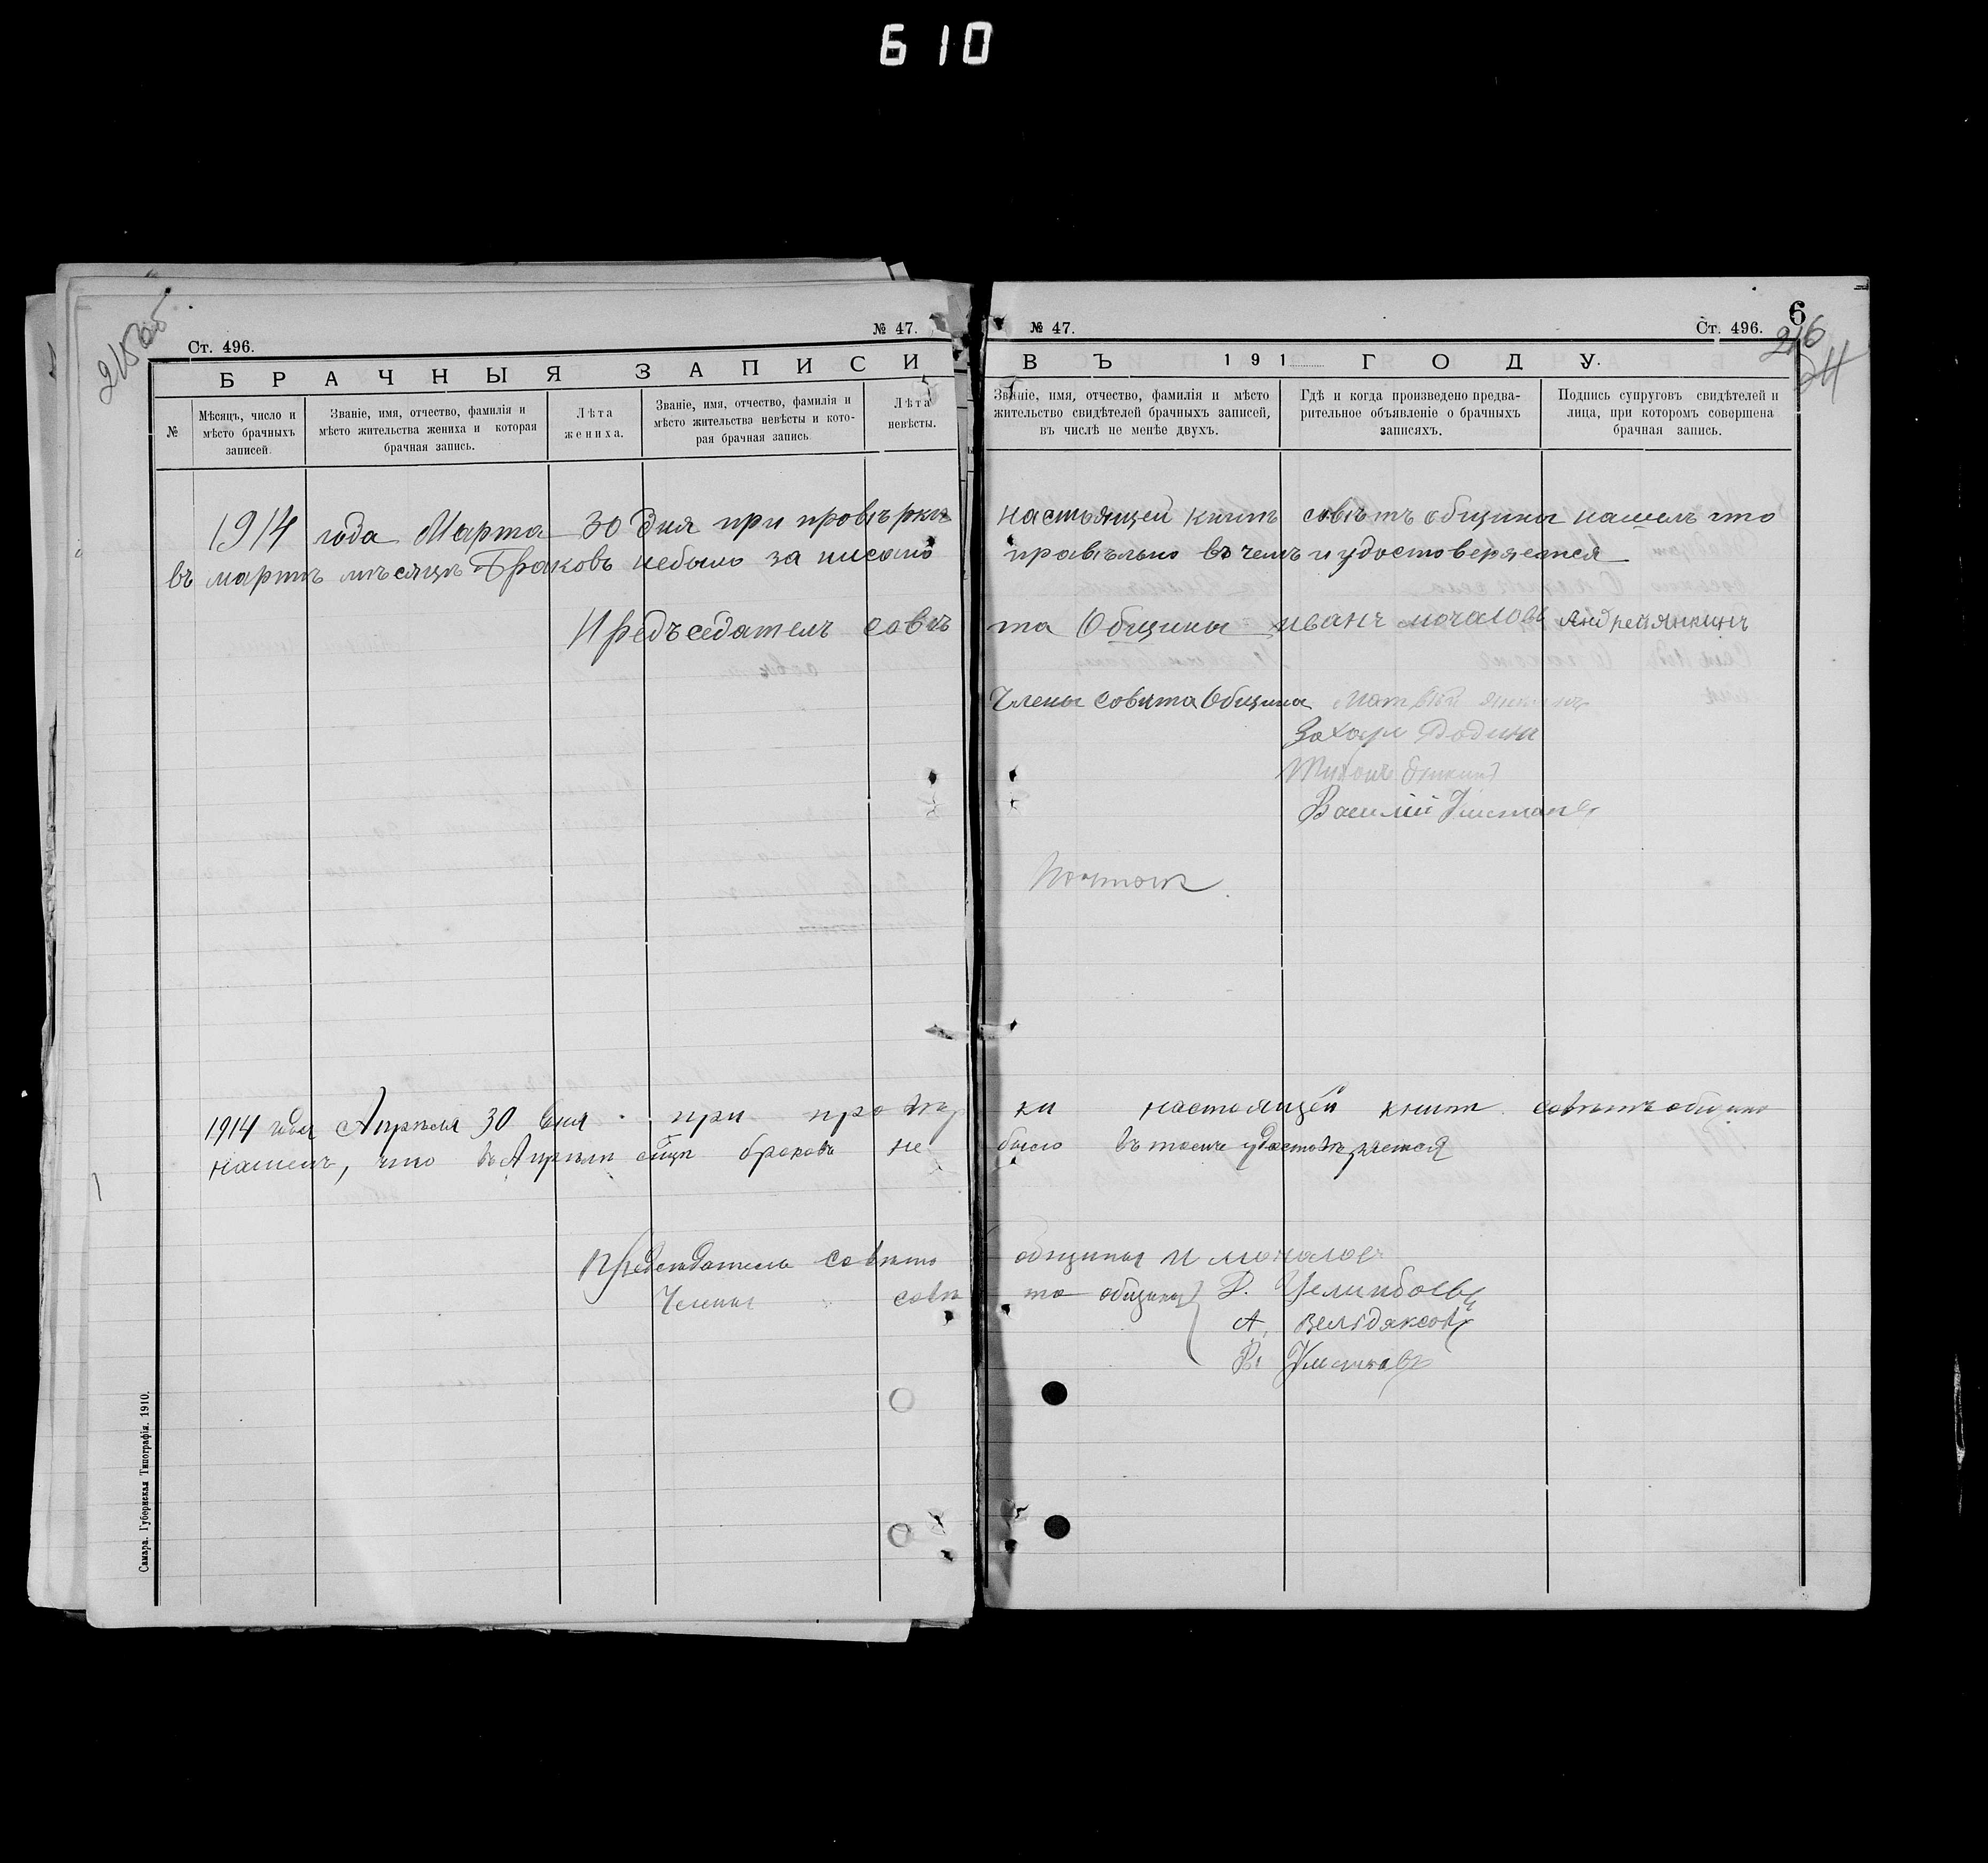 610
215 об
Ст. 496.
№ 47.
БРАЧНЫЯ ЗАПИСИ
№
Мѣсяцъ, число и мѣсто брачныхъ записей.
Званіе, имя, отчество, фамилія и мѣсто жительства жениха и которая брачная запись.
Лѣта жениха.
Званіе, имя, отчество, фамилія и мѣсто жительства невѣсты и которая брачная запись.
Лѣта невѣсты.
№ 47.
Ст. 496.
6
216
24
ВЪ 191 ГОДУ.
Званіе, имя, отчество, фамилія и мѣсто жительство свидѣтелей брачныхъ записей, въ числѣ не менѣе двухъ.
Гдѣ и когда произведено предварительное объявленіе о брачныхъ записяхъ.
Подпись супруговъ свидѣтелей и лица, при которомъ совершена брачная запись.
1914 года Марта 30 дня при провѣрки настоящей книгѣ совѣтъ общины нашелъ что
въ мартѣ мѣсяцѣ Браковъ небыло за писано правѣльно въ чемъ и удостоверяется
Предъседателъ совѣта Общины иванъ мочаловъ Андрей янкинъ
Члены Совѣта Общины Матвѣй
Захаръ Родинъ
Василій
1914 года Апрѣля 30 дня при провѣрки настоящей книги совѣтъ общины
нашелъ, что въ Апрѣли браковъ не было въ томъ удостовѣряется
Председатель совѣта общины И мочаловъ
Члены совѣта общины
Самара. Губернская Типографія. 1910.